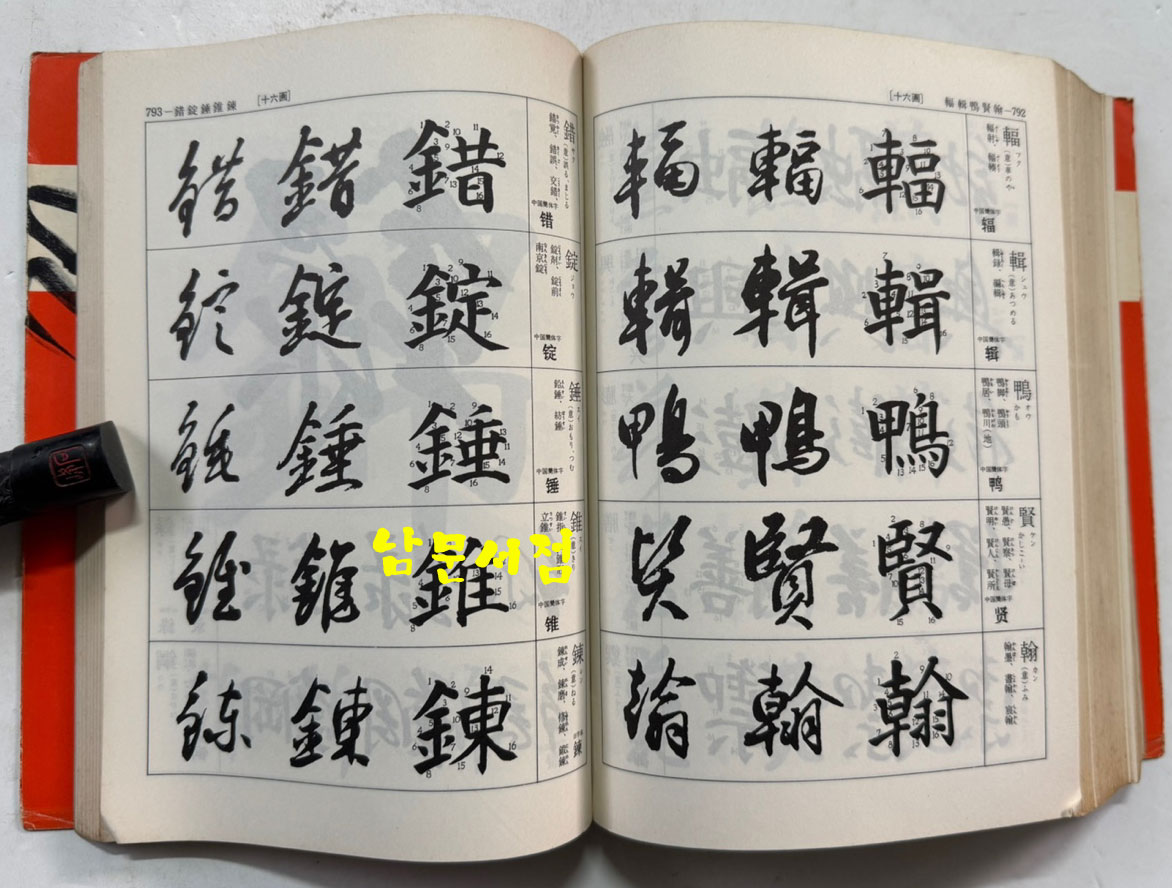 輻輯鴨賢翰—792
[十六画]
輻 フク (意)車のや
輻射、輻輳
中国簡体字
辐
輻 輻 輻
輯 シュウ (意)あつめる
輯録、編輯
中国簡体字
辑
輯 輯 輯
鴨 オウ かも
鴨脚、鴨頭
鴨居、鴨川(地)
中国簡体字
鸭
鴨 鴨 鴨
賢 ケン かしこ・い
賢愚、賢察、賢母
賢明、賢人、賢所
中国簡体字
贤
賢 賢 賢
翰 カン (意)ふみ
翰墨、書翰、宸翰
翰 翰 翰
793—錯錠錘錐鍊
[十六画]
錯 サク (意)誤る、まじる
錯覚、錯誤、交錯
中国簡体字
错
錯 錯 錯
錠 ジョウ
錠剤、錠前
南京錠
中国簡体字
锭
錠 錠 錠
錘 スイ (意)おもり、つむ
鉛錘、紡錘
中国簡体字
锤
錘 錘 錘
錐
立錐
中国簡体字
锥
錐 錐 錐
鍊 レン (意)ねる
鍊成、鍊磨、修鍊、鍛鍊
鍊 鍊 鍊
남문서점